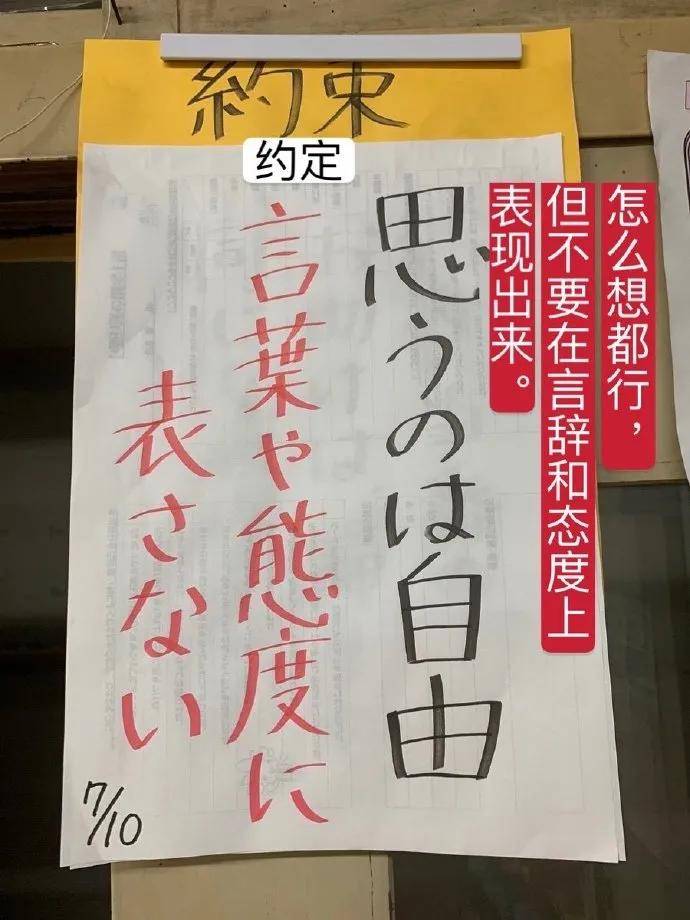 約束
约定
思うのは自由
言葉や態度に
表さない
7/10
怎么想都行，
但不要在言辞和态度上
表现出来。